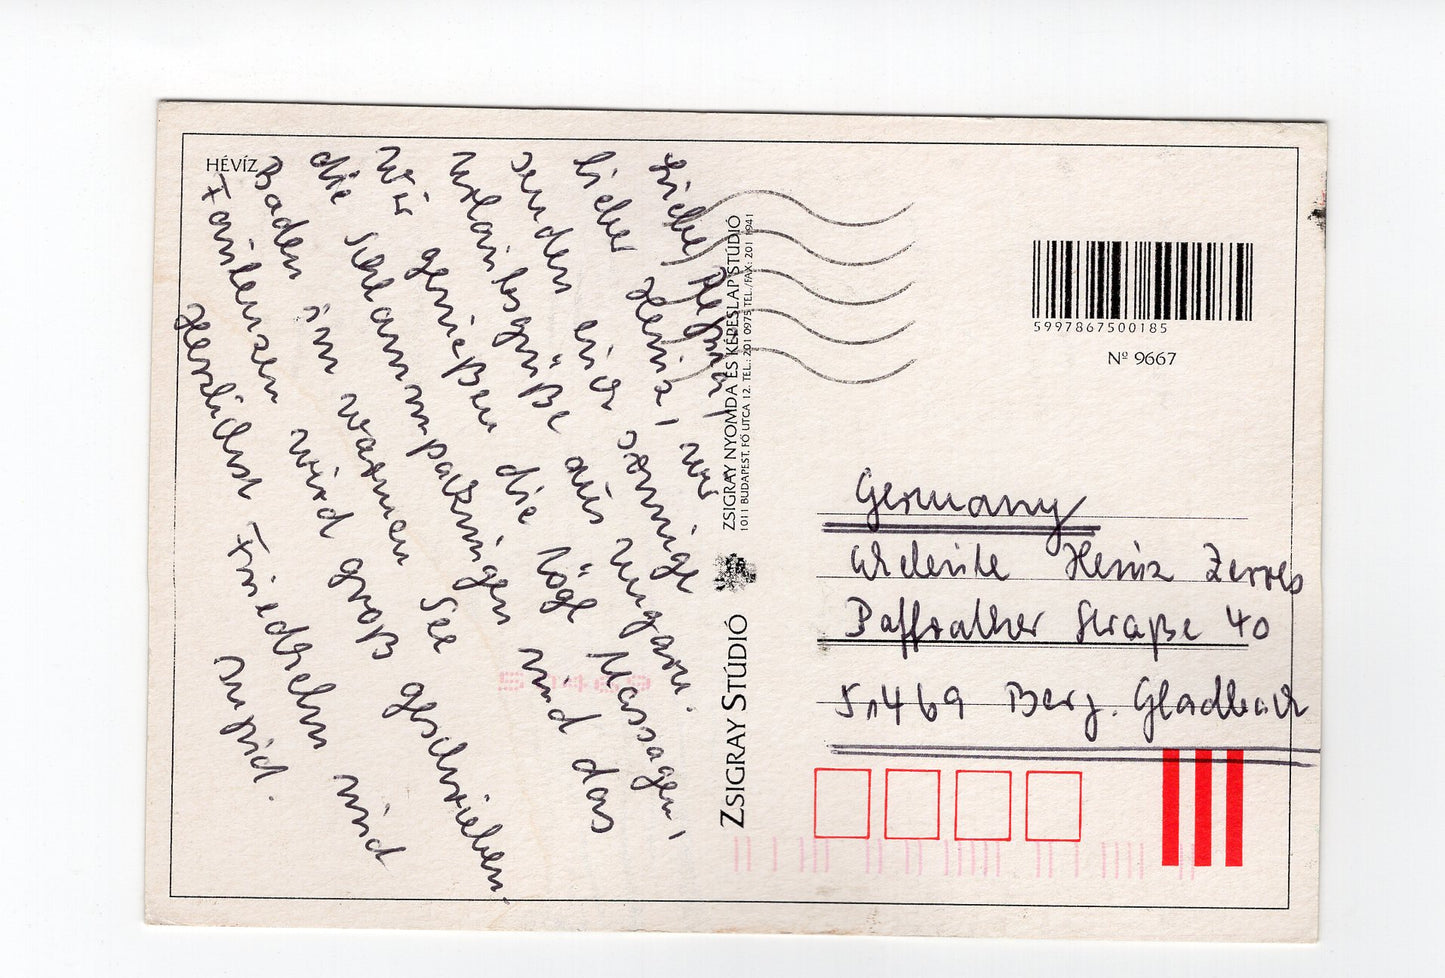 HÉVÍZ
Liebe
lieber Heinz, wir
senden euch sonnige
Urlaubsgrüße aus Ungarn.
Wir genießen die tägl Massagen,
die Schlammpackungen und das
Baden im warmen See
Faulenzen wird groß geschrieben.
Herzlichst Friedhelm und
ZSIGRAY NYOMDA ÉS KÉPESLAP STÚDIÓ
1011 BUDAPEST, FŐ UTCA 12. TEL.: 201 0975 TEL./FAX: 201 1941
ZSIGRAY STÚDIÓ
5997867500185
Nº 9667
Germany
Heinz Zerres
Paffrather Straße 40
51469 Berg. Gladbach
51469